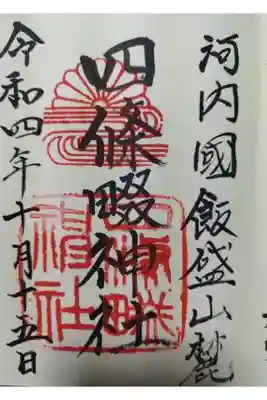 河内國飯盛山麓
四條畷神社
令和四年十月十五日